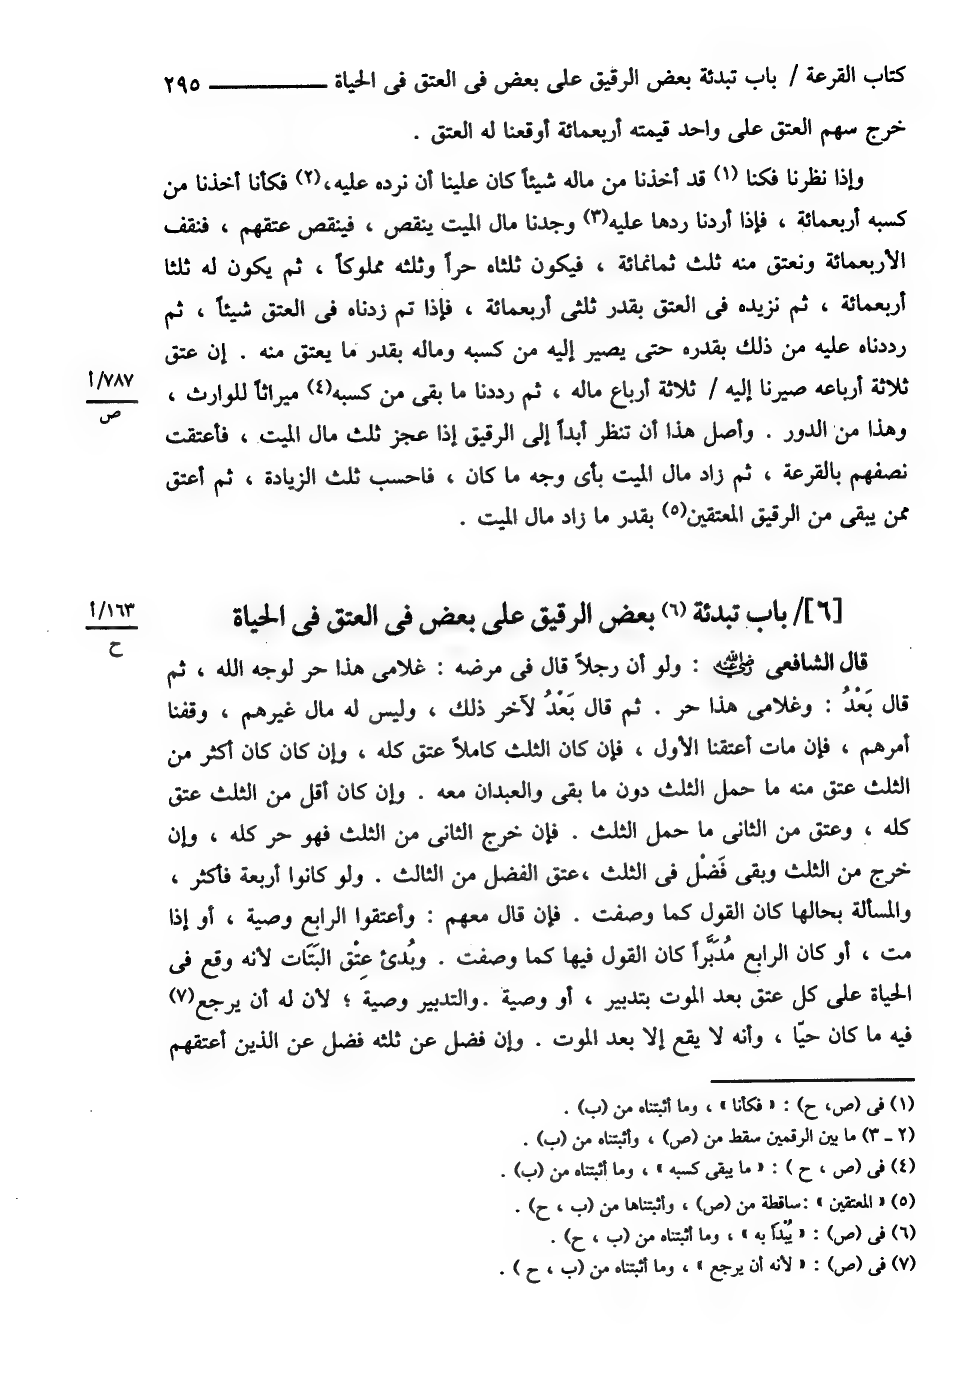 كتاب القرعة / باب تبدئة بعض الرقيق على بعض فى العتق فى الحياة ــــــــــ ٢٩٥
خرج سهم العتق على واحد قيمته أربعمائة أوقعنا له العتق .
وإذا نظرنا فكنا (١) قد أخذنا من ماله شيئاً كان علينا أن نرده عليه،(٢) فكأنا أخذنا من
كسبه أربعمائة ، فإذا أردنا ردها عليه(٣) وجدنا مال الميت ينقص ، فينقص عتقهم ، فنقف
الأربعمائة ونعتق منه ثلث ثمانمائة ، فيكون ثلثاه حراً وثلثه مملوكاً ، ثم يكون له ثلثا
أربعمائة ، ثم نزيده فى العتق بقدر ثلثى أربعمائة ، فإذا تم زدناه فى العتق شيئاً ، ثم
رددناه عليه من ذلك بقدره حتى يصير إليه من كسبه وماله بقدر ما يعتق منه . إن عتق
ثلاثة أرباعه صيرنا إليه / ثلاثة أرباع ماله ، ثم رددنا ما بقى من كسبه(٤) ميراثاً للوارث ،
٧٨٧/أ
ص
وهذا من الدور . وأصل هذا أن تنظر أبداً إلى الرقيق إذا عجز ثلث مال الميت ، فأعتقت
نصفهم بالقرعة ، ثم زاد مال الميت بأى وجه ما كان ، فاحسب ثلث الزيادة ، ثم أعتق
ممن يبقى من الرقيق المعتقين(٥) بقدر ما زاد مال الميت .
[٦]/ باب تبدئة (٦) بعض الرقيق على بعض فى العتق فى الحياة
١٦٣/أ
ح
قال الشافعى رضي الله عنه : ولو أن رجلاً قال فى مرضه : غلامى هذا حر لوجه الله ، ثم
قال بَعْدُ : وغلامى هذا حر . ثم قال بَعْدُ لآخر ذلك ، وليس له مال غيرهم ، وقفنا
أمرهم ، فإن مات أعتقنا الأول ، فإن كان الثلث كاملاً عتق كله ، وإن كان كان أكثر من
الثلث عتق منه ما حمل الثلث دون ما بقى والعبدان معه . وإن كان أقل من الثلث عتق
كله ، وعتق من الثانى ما حمل الثلث . فإن خرج الثانى من الثلث فهو حر كله ، وإن
خرج من الثلث وبقى فَضْل فى الثلث ،عتق الفضل من الثالث . ولو كانوا أربعة فأكثر ،
والمسألة بحالها كان القول كما وصفت . فإن قال معهم : وأعتقوا الرابع وصية ، أو إذا
مت ، أو كان الرابع مُدَبَّراً كان القول فيها كما وصفت . وبُدئ عِتْق البَتَات لأنه وقع فى
الحياة على كل عتق بعد الموت بتدبير ، أو وصية .والتدبير وصية ؛ لأن له أن يرجع(٧)
فيه ما كان حيّا ، وأنه لا يقع إلا بعد الموت . وإن فضل عن ثلثه فضل عن الذين أعتقهم
(١) فى (ص، ح) : « فكأنا » ، وما أثبتناه من (ب) .
(٢ ـ ٣) ما بين الرقمين سقط من (ص) ، وأثبتناه من (ب) .
(٤) فى (ص ، ح ) : « ما يبقى كسبه » ، وما أثبتناه من (ب) .
(٥) « المعتقين » :ساقطة من (ص) ، وأثبتناها من (ب ، ح) .
(٦) فى (ص) : « يُبْدَأ به » ، وما أثبتناه من (ب ، ح) .
(٧) فى (ص) : « لأنه أن يرجع » ، وما أثبتناه من (ب ، ح ) .